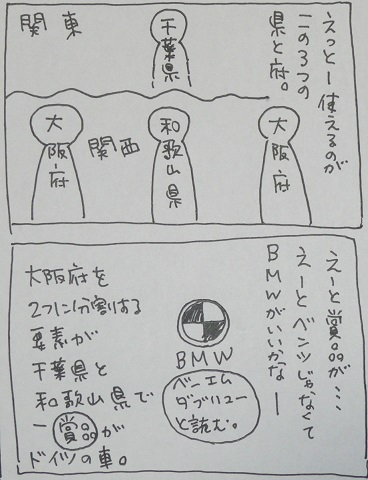 えっとー使えるのが
この3つの
県と府。
関東
千葉県
大阪府
和歌山県
大阪府
関西
えーと賞品が…
えーとベンツじゃなくて
BMWがいいかなー
BMW
ベーエム
ダブリュー
と読む。
大阪府を
2つに分割する
要素が
千葉県と
和歌山県で
一賞品が
ドイツの車。